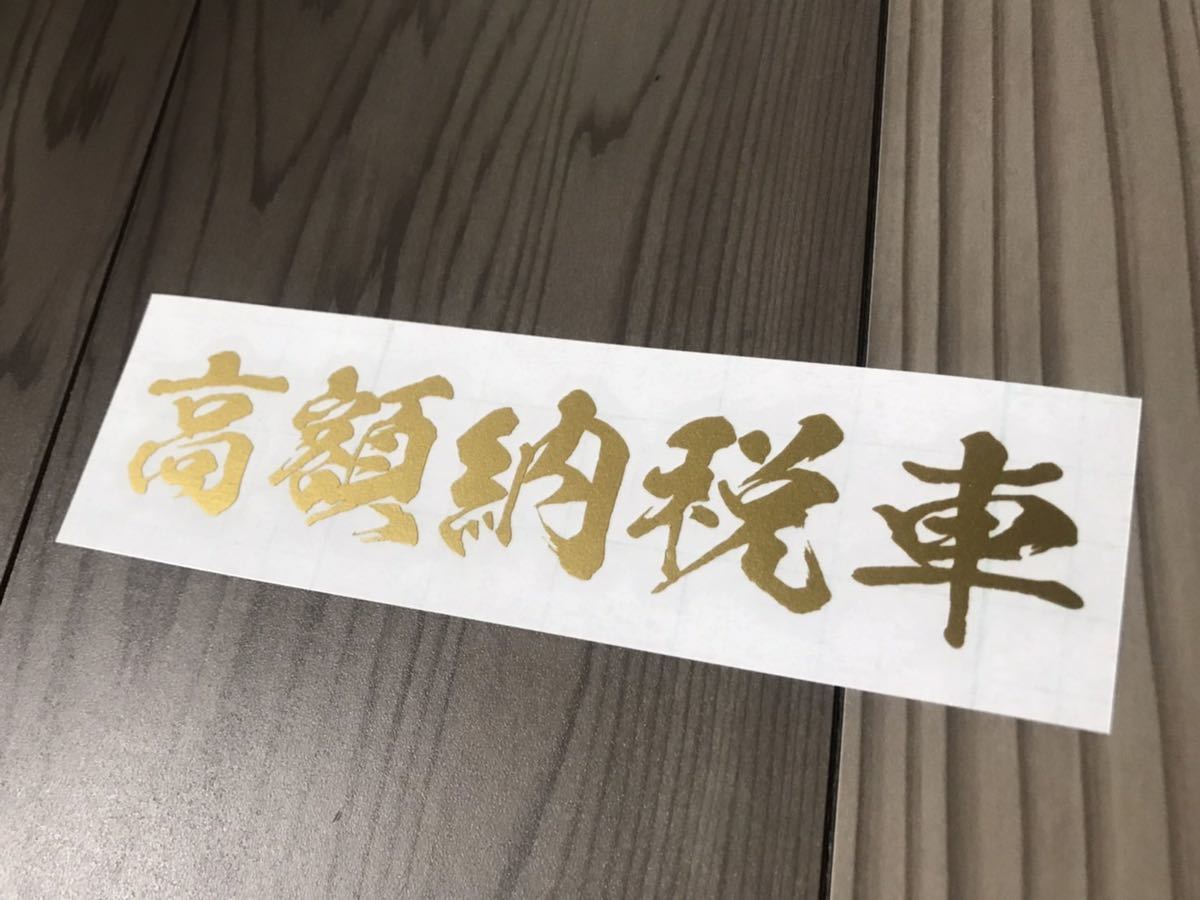 高額納税車